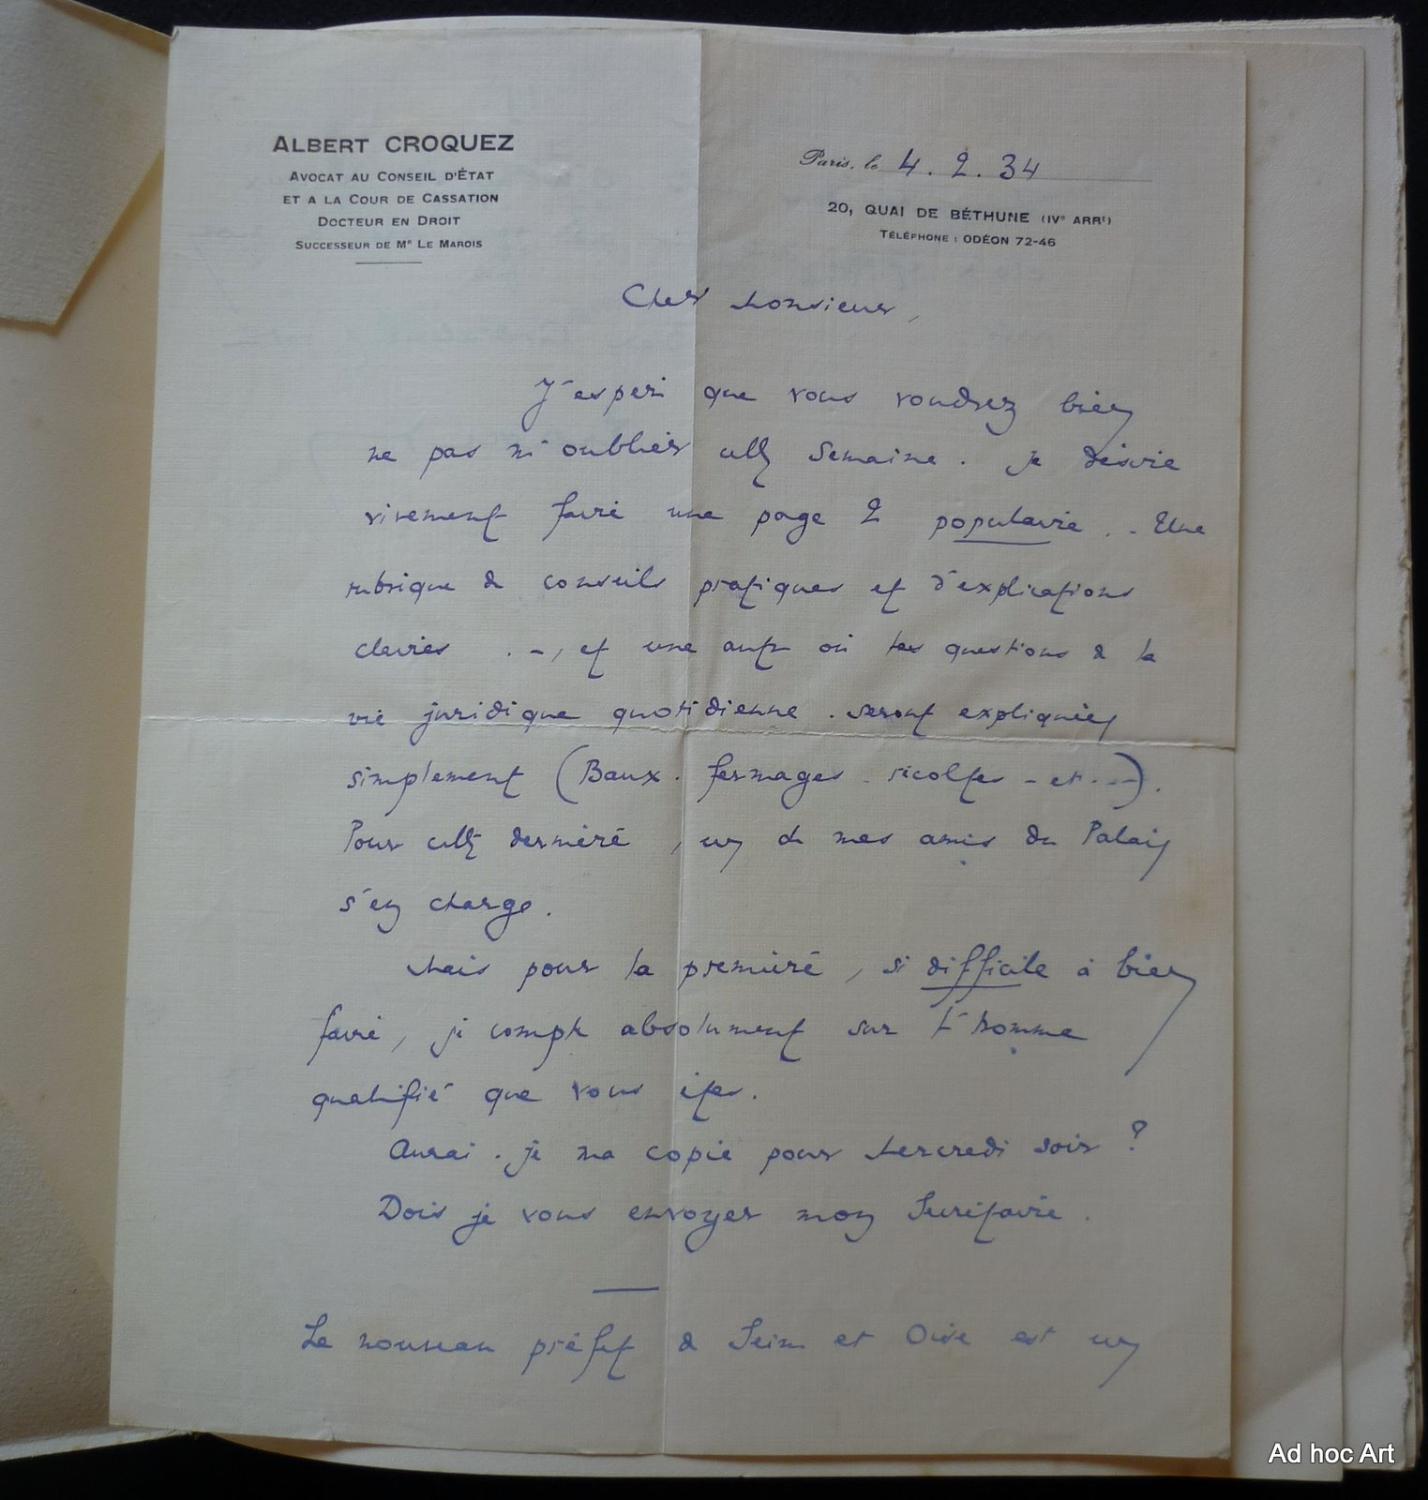 ALBERT CROQUEZ
AVOCAT AU CONSEIL D'ÉTAT
ET A LA COUR DE CASSATION
DOCTEUR EN DROIT
SUCCESSEUR DE Me LE MAROIS
Paris, le 4.2.34
20, QUAI DE BÉTHUNE (IVe ARRt)
TÉLÉPHONE : ODÉON 72-46
Cher Monsieur,
J'espère que vous voudrez bien
ne pas m'oublier cette semaine. Je désire
vivement faire une page 2 populaire .. Une
rubrique de conseils pratiques et d'explications
claires .-, et une autre où les questions de la
vie juridique quotidienne . seront expliquées
simplement (Baux. fermages - récoltes - et...).
Pour cette dernière, un de mes amis du Palais
s'en charge.
Mais pour la première, si difficile à bien
faire, je compte absolument sur l'homme
qualifié que vous êtes.
Aurai-je ma copie pour Mercredi soir ?
Dois je vous envoyer mon Secrétaire.
Le nouveau préfet de Seine et Oise est un
Ad hoc Art